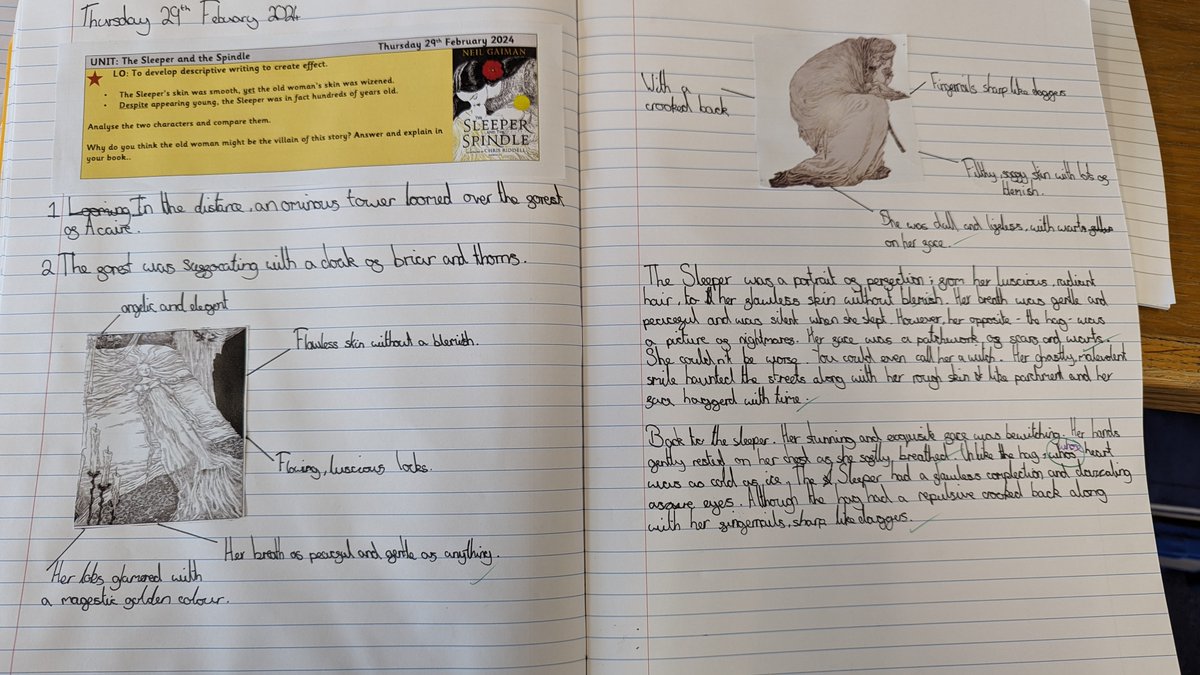 Thursday 29th Febuary 2024
Thursday 29th February 2024
UNIT: The Sleeper and the Spindle
LO: To develop descriptive writing to create effect.
• The Sleeper's skin was smooth, yet the old woman's skin was wizened.
• Despite appearing young, the Sleeper was in fact hundreds of years old.
Analyse the two characters and compare them.
Why do you think the old woman might be the villain of this story? Answer and explain in
your book..
NEIL GAIMAN
THE
SLEEPER
AND THE
SPINDLE
CHRIS RIDDELL
1 Looming In the distance, an ominous tower loomed over the forest
of Acaire.
2 The forest was suffocating with a cloak of briar and thorns.
angelic and elegent
Flawless skin without a blemish.
Flowing, luscious locks.
Her breath as peaceful and gentle as anything.
Her lobs glamered with
a magestic golden colour.
With a
crooked back
Fingernails sharp like daggers
Filthy, soggy skin with lots of
blemish.
She was dull and lifeless, with warts
on her face.
The Sleeper was a portrait of perfection; from her luscious, radient
hair, to her flawless skin without blemish. Her breath was gentle and
peaceful and was silent when she slept. However, her opposite - the hag - was
a picture of nightmares. Her face was a patchwork of scars and warts.
She couldn't be worse. You could even call her a witch. Her ghastly, malevolent
smile haunted the streets along with her rough skin like parchment and her
face haggerd with time.
Back to the sleeper. Her stunning and exquisite face was bewitching. Her hands
gently rested on her chest as she softly breathed. Unlike the hag, whos heart
whose
was as cold as ice, The Sleeper had a flawless complection and dazzaling
asqure eyes. Although the hag had a repulsive crooked back along
with her fingernails, sharp like daggers.